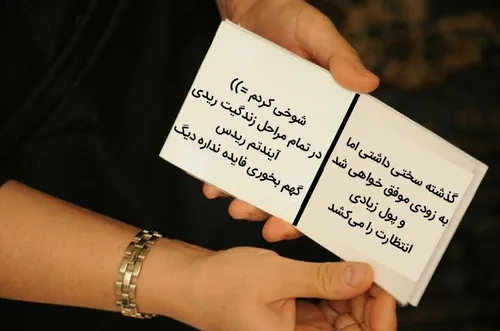 گذشته سختی داشتی اما
به زودی موفق خواهی شد
و پول زیادی
انتظارت را می‌کشد
شوخی کردم =))
در تمام مراحل زندگیت ریدی
آیندتم ریدس
گهم بخوری فایده نداره دیگ